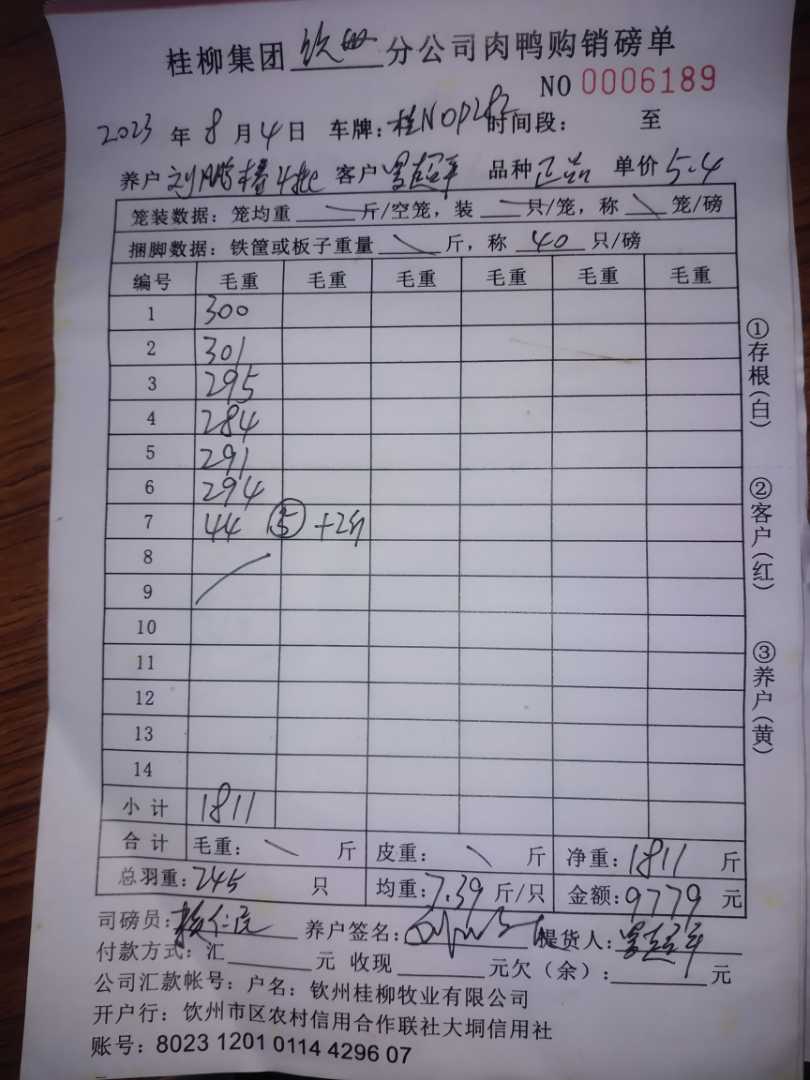 桂柳集团 钦州 分公司肉鸭购销磅单
NO 0006189
2023 年 8 月 4 日 车牌: 桂N0P282 时间段: 至
养户 刘鹏 4批 客户 罗超平 品种 正品 单价 5.4
笼装数据: 笼均重 斤/空笼, 装 只/笼, 称 笼/磅
捆脚数据: 铁筐或板子重量 斤, 称 40 只/磅
编号 毛重 毛重 毛重 毛重 毛重 毛重
1 300
2 301
3 295
4 284
5 291
6 294
7 44 ⑤ +2斤
8
9
10
11
12
13
14
小计 1811
合计 毛重: 斤 皮重: 斤 净重: 1811 斤
总羽重: 245 只 均重: 7.39 斤/只 金额: 9779 元
司磅员: 养户签名: 提货人: 罗超平
付款方式: 汇 元 收现 元欠(余): 元
公司汇款帐号: 户名: 钦州桂柳牧业有限公司
开户行: 钦州市区农村信用合作联社大垌信用社
账号: 8023 1201 0114 4296 07
①存根(白)
②客户(红)
③养户(黄)